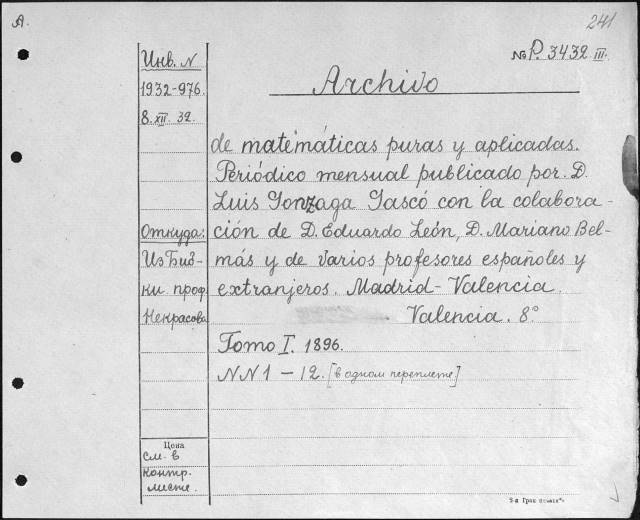 A.
241
№ P. 3432 III.
Инв. N
1932-976.
8. XII. 32.
Archivo
de matemáticas puras y aplicadas.
Periódico mensual publicado por D.
Luis Gonzaga Gascó con la colabora-
Откуда:
ción de D. Eduardo León, D. Mariano Bel-
Из Биб-
más y de varios profesores españoles y
ки проф.
extranjeros. Madrid - Valencia.
Некрасова
Valencia. 8°
Tomo I. 1896.
NN 1 - 12. [в одном переплете]
Цена
см. в
контр.
листе.